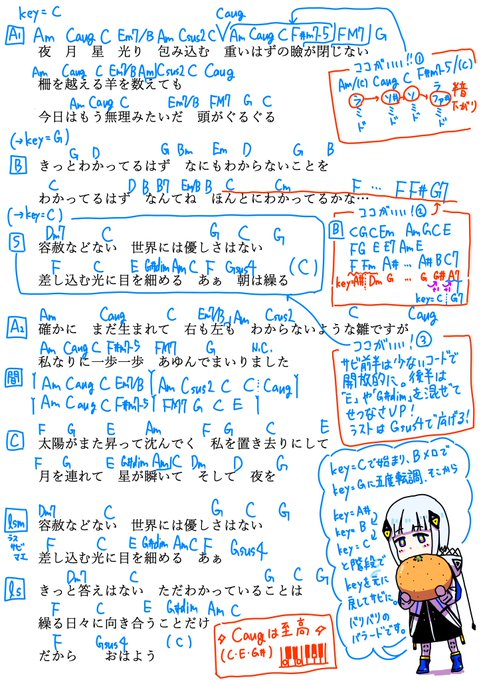 key=C
Caug
A1
Am Caug C Em7/B Am Csus2 C Am Caug C F#m7-5 FM7 G
夜 月 星 光り 包み込む 重いはずの瞼が閉じない
Am Caug C Em7/B Am Csus2 C Caug
柵を越える羊を数えても
Am Caug C Em7/B FM7 G C
今日はもう無理みたいだ 頭がぐるぐる
ココがいい!!①
Am/(C) Caug C F#m7-5/(C)
ラ ソ# ソ ラ ファ#
ミ ミ ミ ミ
ド ド ド ド
半音下がり
(→key=G)
B
G D G Bm Em D G B
きっとわかってるはず なにもわからないことを
C D B B7 Em/B B C Cm F … F F# G7
わかってるはず なんてね ほんとにわかってるかな…
ココがいい!!②
B
C G C Em Am G C E
F G E E7 Am E
F Fm A# … A# B C7
key=A# Dm G … G G# A7
key=C G7
(→key=C)
S
Dm7 C G C G
容赦などない 世界には優しさはない
F C E G#dim Am C F Gsus4 (C)
差し込む光に目を細める あぁ 朝は繰る
A2
Am Caug C Em7/B Am Csus2 C Caug
確かに まだ生まれて 右も左も わからないような雛ですが
Am Caug C F#m7-5 FM7 G N.C.
私なりに一歩一歩 あゆんでまいりました
ココがいい!!③
サビ前半は少ないコードで
開放的に。後半は
「E」や「G#dim」を混ぜて
せつなさUP!
ラストはGsus4で広げる!
間
Am Caug C Em7/B Am Csus2 C C Caug
Am Caug C F#m7-5 FM7 G C E
C
F G E Am F G C E
太陽がまた昇って沈んでく 私を置き去りにして
F G E G#dim Am C Dm D G
月を連れて 星が瞬いて そして 夜を
key=Cで始まり、Bメロで
key=Gに五度転調、そこから
key=A#
key=B
key=C
と階段で
keyを元に
戻してサビに。
バリバリの
バラードです。
lsm
ラスサビマエ
Dm7 C G C G
容赦などない 世界には優しさはない
F C E G#dim Am C F Gsus4
差し込む光に目を細める あぁ
ls
Dm7 C G C G
きっと答えはない ただわかっていることは
F C E G#dim Am C
繰る日々に向き合うことだけ
F Gsus4 (C)
だから おはよう
Caugは至高
(C・E・G#)